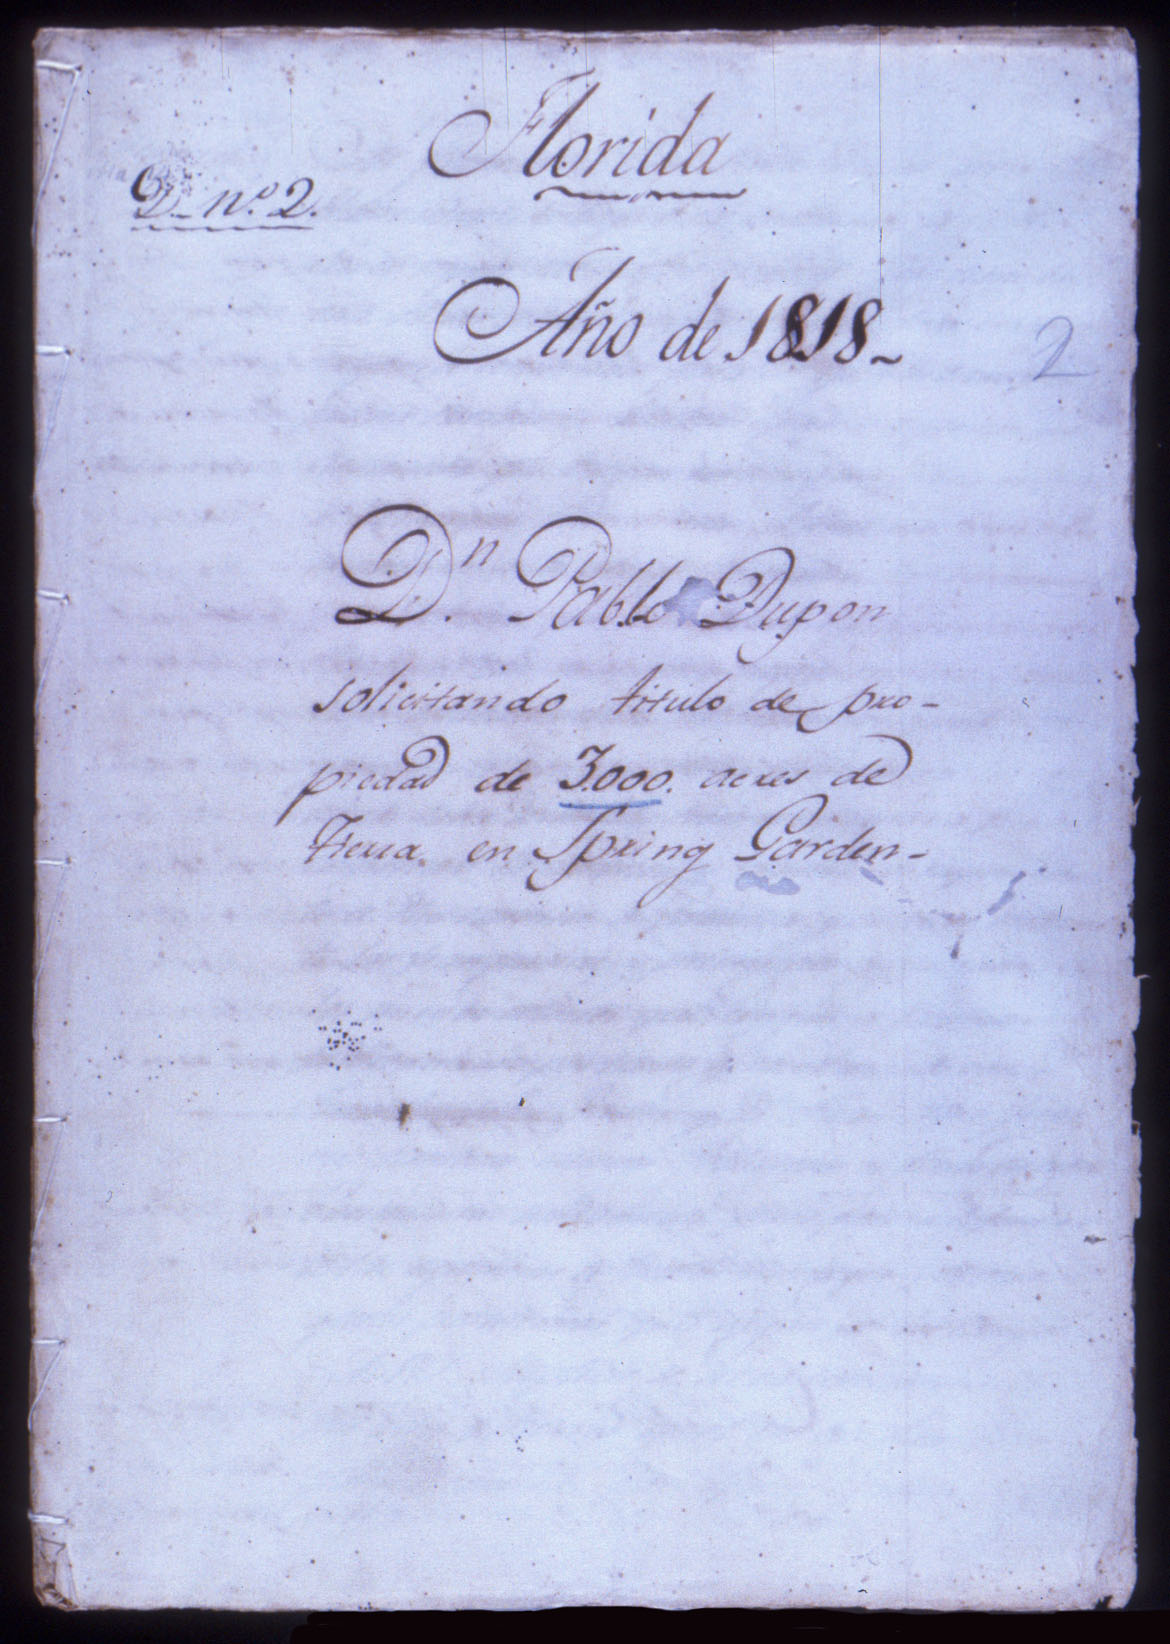 Florida
D. n.º 2.
Año de 1818
2
D.n Pablo Dupon
solicitando titulo de pro-
piedad de 3.000. acres de
tierra en Spring Garden-